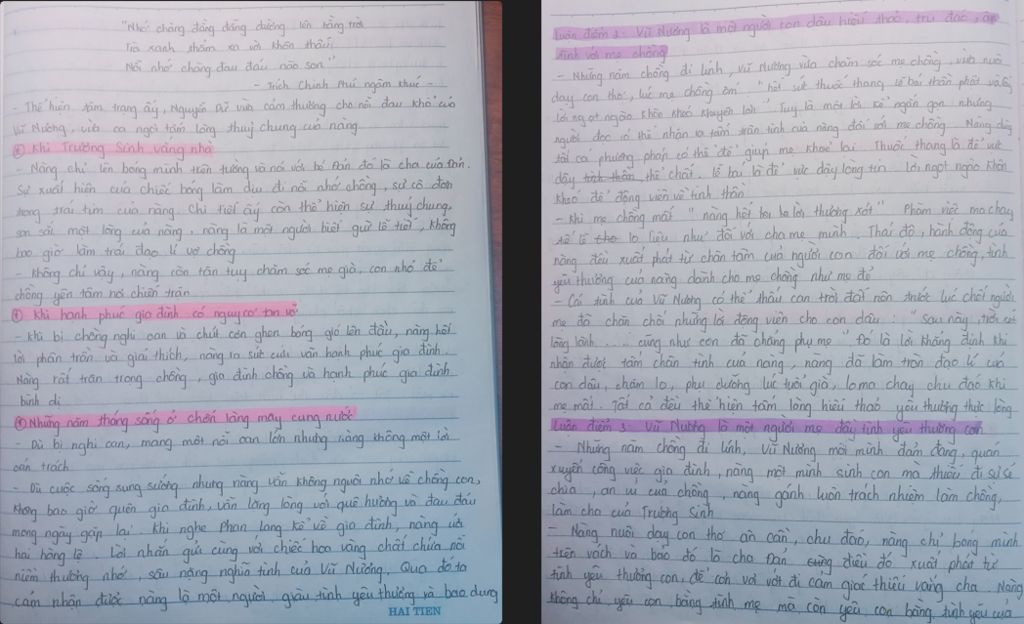 "Nhớ chàng đằng đẵng đường lên bằng trời
Trời xanh thăm xa vời khôn thấu
Nỗi nhớ chàng đau đáu nào xong"
- Trích Chinh Phụ ngâm khúc -
- Thể hiện tâm trạng ấy, Nguyễn Dữ vừa cảm thương cho nỗi đau khổ của
Vũ Nương, vừa ca ngợi tấm lòng thuỷ chung của nàng.
Khi Trương Sinh vắng nhà
- Nàng chỉ lên bóng mình trên tường và nói với bé Đản đó là cha của Đản.
Sự xuất hiện của chiếc bóng làm dịu đi nỗi nhớ chồng, sự cô đơn
trong trái tim của nàng. Chi tiết ấy còn thể hiện sự thuỷ chung,
son sắt một lòng của nàng, nàng là một người biết giữ lễ tiết, không
bao giờ làm trái đạo lí vợ chồng
- Không chỉ vậy, nàng còn tận tuỵ chăm sóc mẹ già, con nhỏ để
chồng yên tâm nơi chiến trận
Khi hạnh phúc gia đình có nguy cơ tan vỡ
- Khi bị chồng nghi oan và chút cơn ghen bóng gió lên đầu, nàng hết
lời phân trần và giải thích, nàng ra sức cứu vãn hạnh phúc gia đình.
Nàng rất trân trọng chồng, gia đình chồng và hạnh phúc gia đình
bình dị
Những năm tháng sống ở chốn làng mây cung nước
- Dù bị nghi oan, mang một nỗi oan lớn nhưng nàng không một lời
oán trách
- Dù cuộc sống sung sướng nhưng nàng vẫn không nguôi nhớ về chồng con,
không bao giờ quên gia đình, vẫn lòng lòng với quê hương và đau đáu
mong ngày gặp lại. Khi nghe Phan Lang kể về gia đình, nàng ứa
hai hàng lệ. Lời nhắn gửi cùng với chiếc hoa vàng chất chứa nỗi
niềm thương nhớ, sâu nặng nghĩa tình của Vũ Nương. Qua đó ta
cảm nhận được nàng là một người giàu tình yêu thương và bao dung
HAI TIEN
Luận điểm 2: Vũ Nương là một người con dâu hiếu thảo, trọn đạo, ân
tình với mẹ chồng
- Những năm chồng đi lính, Vũ Nương vừa chăm sóc mẹ chồng, vừa nuôi
dạy con thơ, lúc mẹ chồng ốm "hết sức thuốc thang lễ bái thần phật và lấy
lời ngọt ngào khôn khéo khuyên lơn". Tuy là một lời kể ngắn gọn nhưng
người đọc có thể nhận ra tấm chân tình của nàng đối với mẹ chồng. Nàng dùng
tất cả phương pháp có thể để giúp mẹ khoẻ lại. Thuốc thang là để vực
dậy tinh thần thể chất. Lễ bái là để vực dậy lòng tin. Lời ngọt ngào khôn
khéo để động viên về tinh thần
- Khi mẹ chồng mất "nàng hết lời ba lời thương xót". Phàm việc ma chay
tế lễ lo liệu như đối với cha mẹ mình. Thái độ, hành động của
nàng đều xuất phát từ chân tâm của người con đối với mẹ chồng, tình
yêu thương của nàng dành cho mẹ chồng như mẹ đẻ
- Cái tình của Vũ Nương có thể thấu can trời đất nên trước lúc chết người
mẹ đã chăn chối những lời động viên cho con dâu: "Sau này, trời xét
lòng lành ..... cũng như con đã chẳng phụ mẹ". Đó là lời khẳng định khi
nhận được tấm chân tình của nàng, nàng đã làm tròn đạo lí của
con dâu, chăm lo, phụ dưỡng lúc tuổi già, lo ma chay chu đáo khi
mẹ mất. Tất cả đều thể hiện tấm lòng hiếu thảo yêu thương thực lòng
Luận điểm 3: Vũ Nương là một người mẹ đầy tình yêu thương con
- Những năm chồng đi lính, Vũ Nương một mình đảm đang, quán
xuyến công việc gia đình, nàng một mình sinh con mà thiếu đi sự sẻ
chia, an ủi của chồng, nàng gánh luôn trách nhiệm làm chồng,
làm cha của Trương Sinh
- Nàng nuôi dạy con thơ ân cần, chu đáo, nàng chỉ bóng mình
trên vách và bảo đó là cha Đản cũng điều đó xuất phát từ
tình yêu thương con, để con vơi vớt đi cảm giác thiếu vắng cha. Nàng
không chỉ yêu con bằng tình mẹ mà còn yêu con bằng tình yêu của